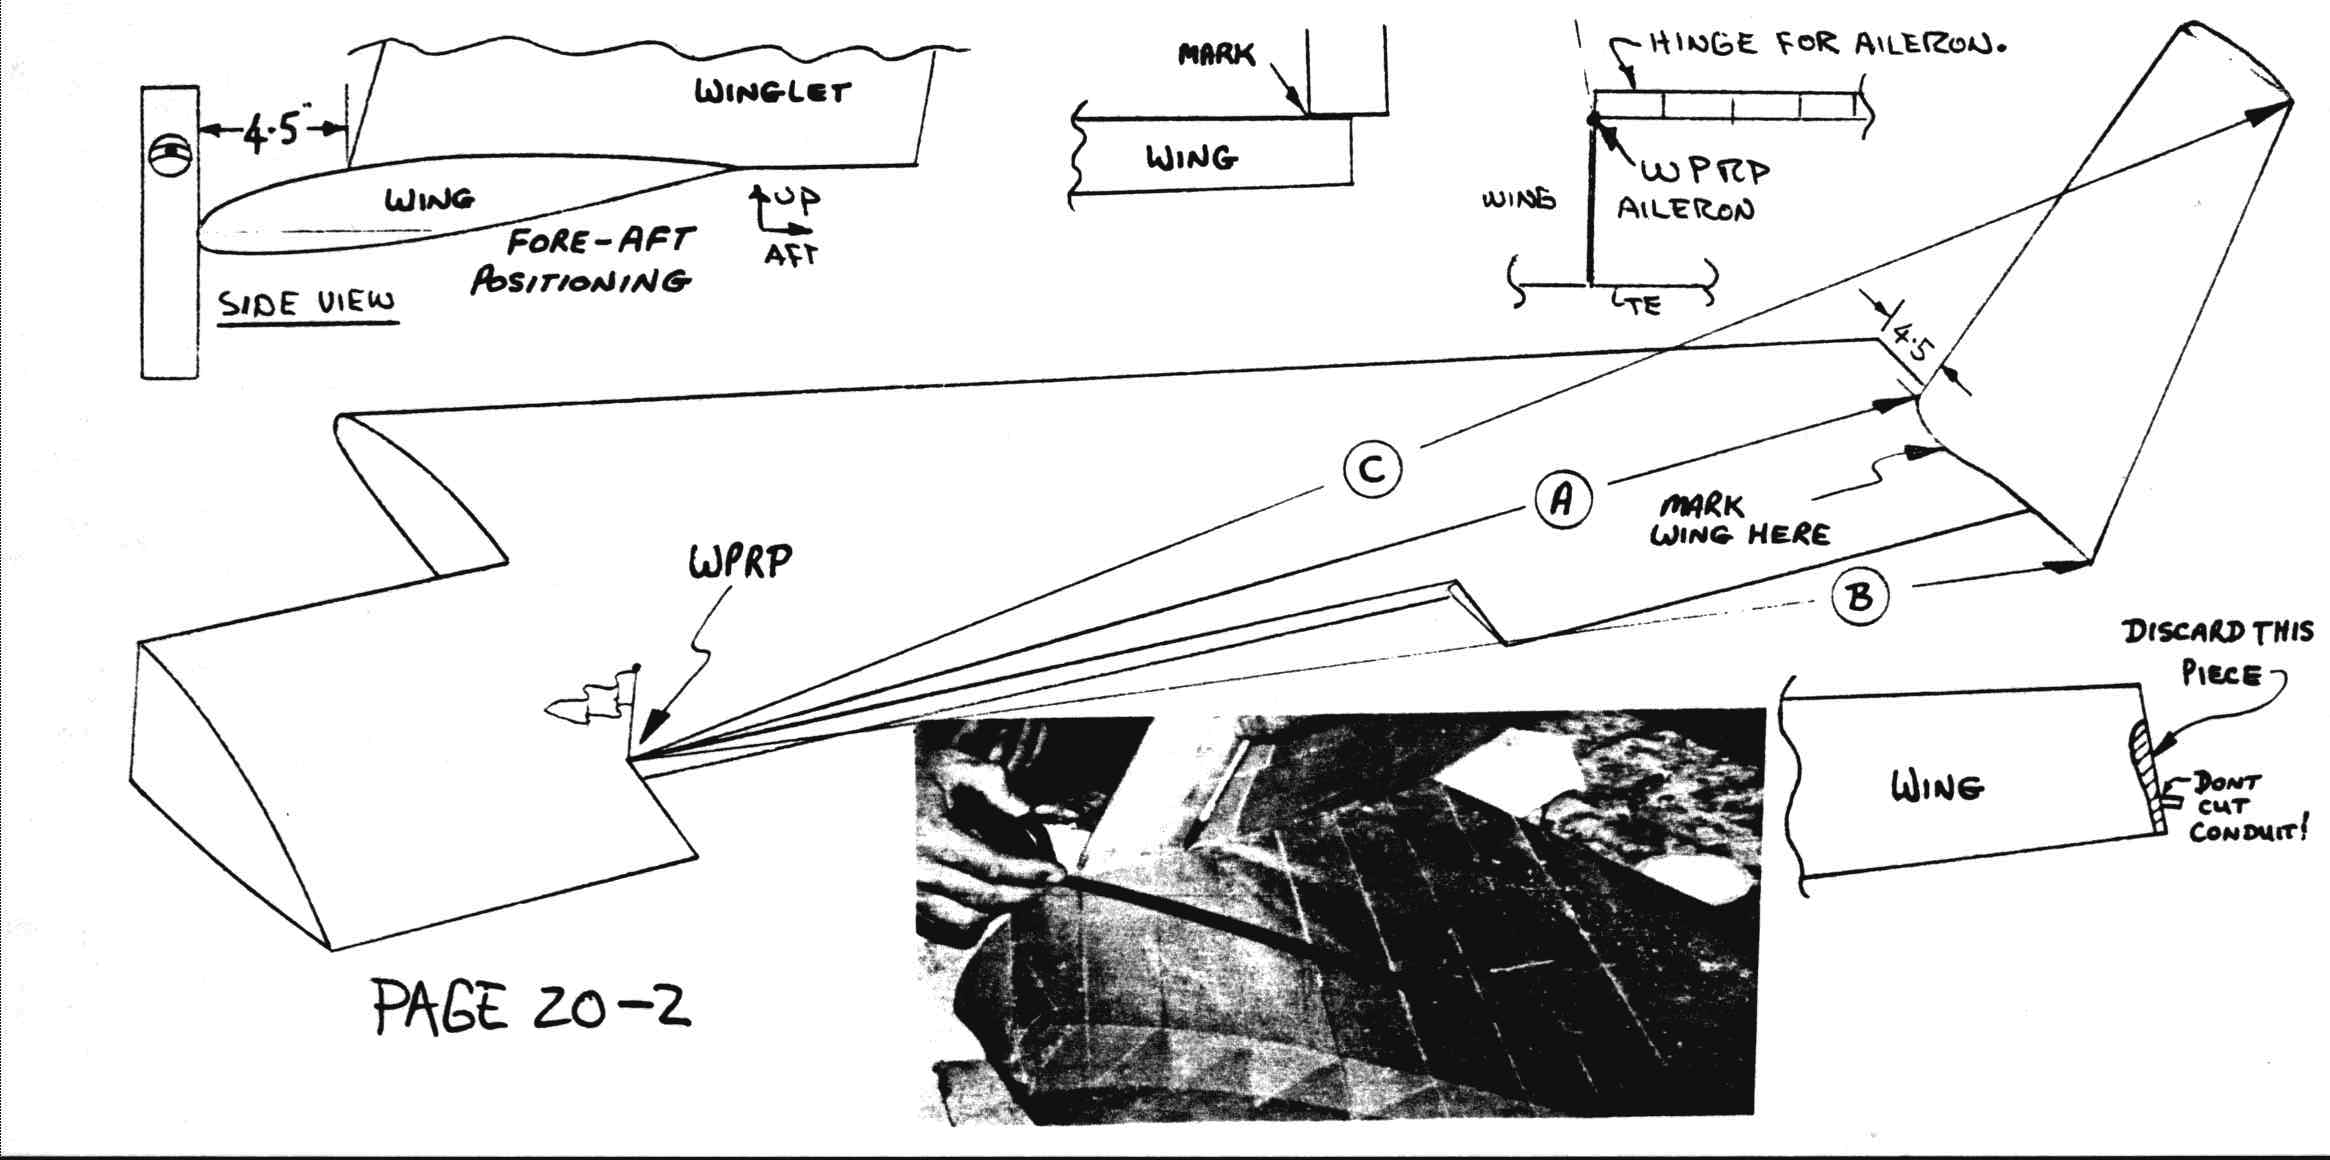 WINGLET
4.5"
WING
UP
AFT
FORE-AFT
POSITIONING
SIDE VIEW
MARK
WING
HINGE FOR AILERON.
WPRP
AILERON
WING
TE
4.5
C
A
MARK
WING HERE
B
WPRP
DISCARD THIS
PIECE
WING
DONT
CUT
CONDUIT!
PAGE 20-2